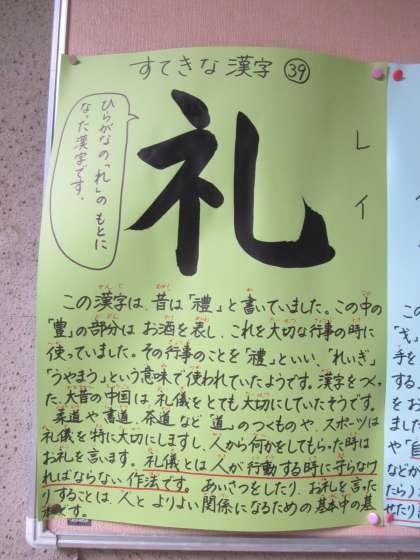 すてきな漢字 ㊴
ひらがなの「れ」のもとに
なった漢字です。
礼
レイ
この漢字は、昔は「禮」と書いていました。この中の
「豊」の部分はお酒を表し、これを大切な行事の時に
使っていました。その行事のことを「禮」といい、「れいぎ」
「うやまう」という意味で使われていたようです。漢字をつくっ
た、大昔の中国は礼儀をとても大切にしていたそうです。
柔道や書道、茶道など「道」のつくものや、スポーツは
礼儀を特に大切にしますし、人から何かをしてもらった時は
お礼を言います。礼儀とは人が行動する時に守らなけ
ればならない作法です。あいさつをしたり、お礼を言った
りすることは、人とよりよい関係になるための基本中の基
本です。